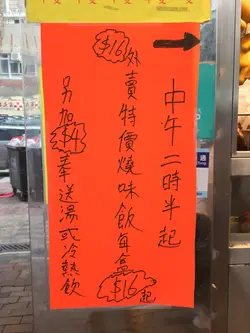 中午二時半起
$16外賣特價燒味飯每盒$16起
另加$4奉送湯或冷熱飲